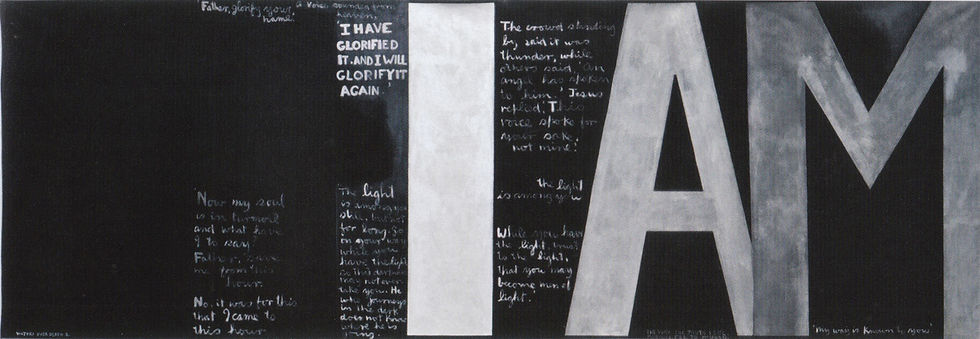 Father, glorify your
name.'
a voice sounded from
heaven,
'I HAVE
GLORIFIED
IT. AND I WILL
GLORIFY IT
AGAIN.'
'Now my soul
is in turmoil
and what have
I to say?
Father, save
me from this
hour.
No, it was for this
that I came to
this hour
'The light
is among you
still, but not
for long. Go
on your way
while you
have the light
so that darkness
may not over
take you. He
who journeys
in the dark
does not know
where he is
going.
I AM
The crowd standing
by said it was
thunder, while
others said, 'An
angel has spoken
to him.' Jesus
replied, 'This
voice spoke for
your sake,
not mine.'
the light
is among you
While you have
the light, trust
to the light,
that you may
become men of
light.'
'My way is known to you'